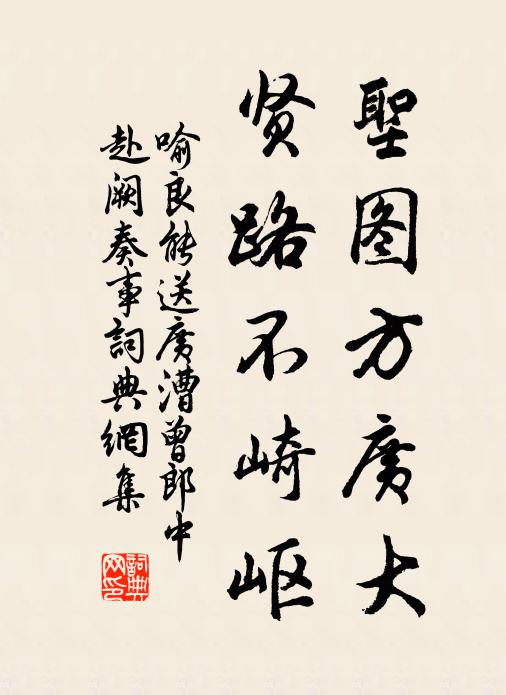 聖图方廣大
贤路不崎岖
喻良能送廣漕曾郎中
赴阙奏事詞典網集
詞典
网印